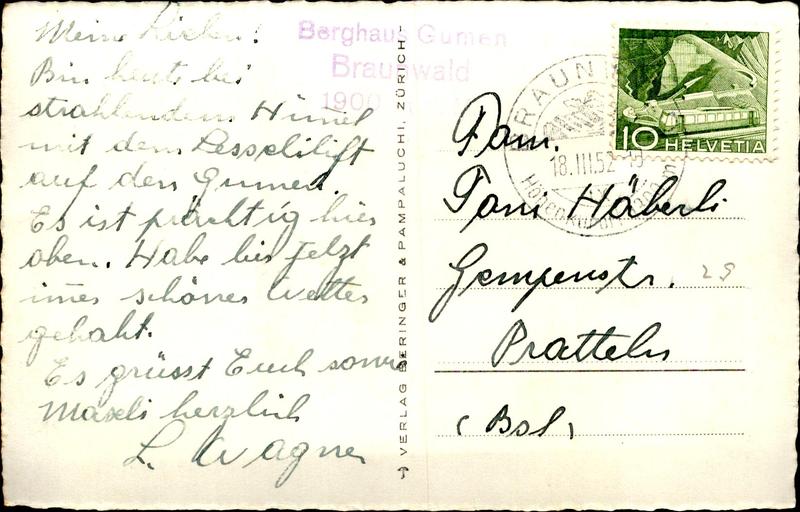 Meine Lieben!
Bin heute bei
strahlendem Himel
mit dem Sesselilift
auf den Gumen.
Es ist prächtig hier
oben. Habe bis jetzt
imer schönes Wetter
gehabt.
Es grüsst Euch sowie
Maxli herzlich
L. Wagner
Berghaus Gumen
Braunwald
1900
VERLAG BERINGER & PAMPALUCHI, ZÜRICH
BRAUNWALD
18.III.52
Höhenkurort
10 HELVETIA
Fam.
Toni Häberli
Gempenstr. 29
Pratteln
(Bsl)